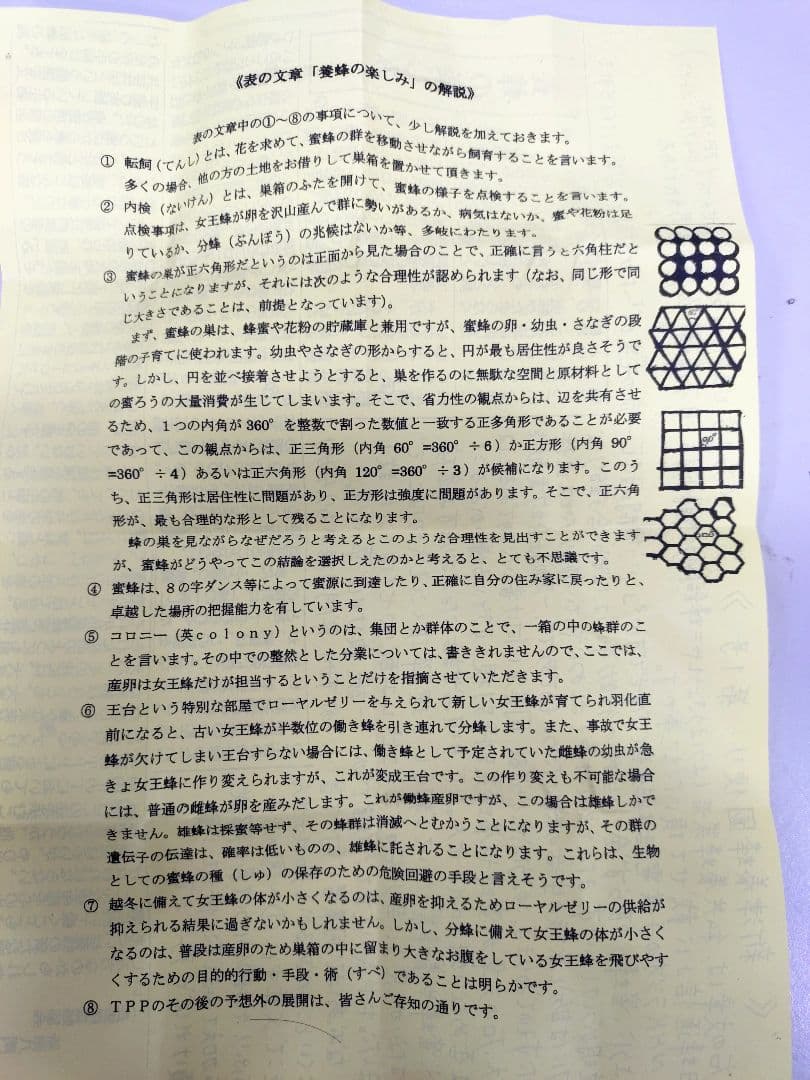 《表の文章「養蜂の楽しみ」の解説》
表の文章中の①～⑧の事項について、少し解説を加えておきます。
① 転飼（てんし）とは、花を求めて、蜜蜂の群を移動させながら飼育することを言います。
多くの場合、他の方の土地をお借りして巣箱を置かせて頂きます。
② 内検（ないけん）とは、巣箱のふたを開けて、蜜蜂の様子を点検することを言います。
点検事項は、女王蜂が卵を沢山産んで群に勢いがあるか、病気はないか、蜜や花粉は足
りているか、分蜂（ぶんぽう）の兆候はないか等、多岐にわたります。
③ 蜜蜂の巣が正六角形だというのは正面から見た場合のことで、正確に言うと六角柱だと
いうことになりますが、それには次のような合理性が認められます（なお、同じ形で同
じ大きさであることは、前提となっています）。
まず、蜜蜂の巣は、蜂蜜や花粉の貯蔵庫と兼用ですが、蜜蜂の卵・幼虫・さなぎの段
階の子育てに使われます。幼虫やさなぎの形からすると、円が最も居住性が良さそうで
す。しかし、円を並べ接着させようとすると、巣を作るのに無駄な空間と原材料として
の蜜ろうの大量消費が生じてしまいます。そこで、省力性の観点からは、辺を共有させ
るため、１つの内角が 360°を整数で割った数値と一致する正多角形であることが必要
であって、この観点からは、正三角形（内角 60°=360°÷６）か正方形（内角 90°
=360°÷４）あるいは正六角形（内角 120°=360°÷３）が候補になります。このう
ち、正三角形は居住性に問題があり、正方形は強度に問題があります。そこで、正六角
形が、最も合理的な形として残ることになります。
蜂の巣を見ながらなぜだろうと考えるとこのような合理性を見出すことができます
が、蜜蜂がどうやってこの結論を選択しえたのかと考えると、とても不思議です。
④ 蜜蜂は、８の字ダンス等によって蜜源に到達したり、正確に自分の住み家に戻ったりと、
卓越した場所の把握能力を有しています。
⑤ コロニー（英ｃｏｌｏｎｙ）というのは、集団とか群体のことで、一箱の中の蜂群のこ
とを言います。その中での整然とした分業については、書ききれませんので、ここでは、
産卵は女王蜂だけが担当するということだけを指摘させていただきます。
⑥ 王台という特別な部屋でローヤルゼリーを与えられて新しい女王蜂が育てられ羽化直
前になると、古い女王蜂が半数位の働き蜂を引き連れて分蜂します。また、事故で女王
蜂が欠けてしまい王台すらない場合には、働き蜂として予定されていた雌蜂の幼虫が急
きょ女王蜂に作り変えられますが、これが変成王台です。この作り変えも不可能な場合
には、普通の雌蜂が卵を産みだします。これが働蜂産卵ですが、この場合は雄蜂しかで
きません。雄蜂は採蜜等せず、その蜂群は消滅へとむかうことになりますが、その群の
遺伝子の伝達は、確率は低いものの、雄蜂に託されることになります。これらは、生物
としての蜜蜂の種（しゅ）の保存のための危険回避の手段と言えそうです。
⑦ 越冬に備えて女王蜂の体が小さくなるのは、産卵を抑えるためローヤルゼリーの供給が
抑えられる結果に過ぎないかもしれません。しかし、分蜂に備えて女王蜂の体が小さく
なるのは、普段は産卵のため巣箱の中に留まり大きなお腹をしている女王蜂を飛びやす
くするための目的的行動・手段・術（すべ）であることは明らかです。
⑧ ＴＰＰのその後の予想外の展開は、皆さんご存知の通りです。
90°